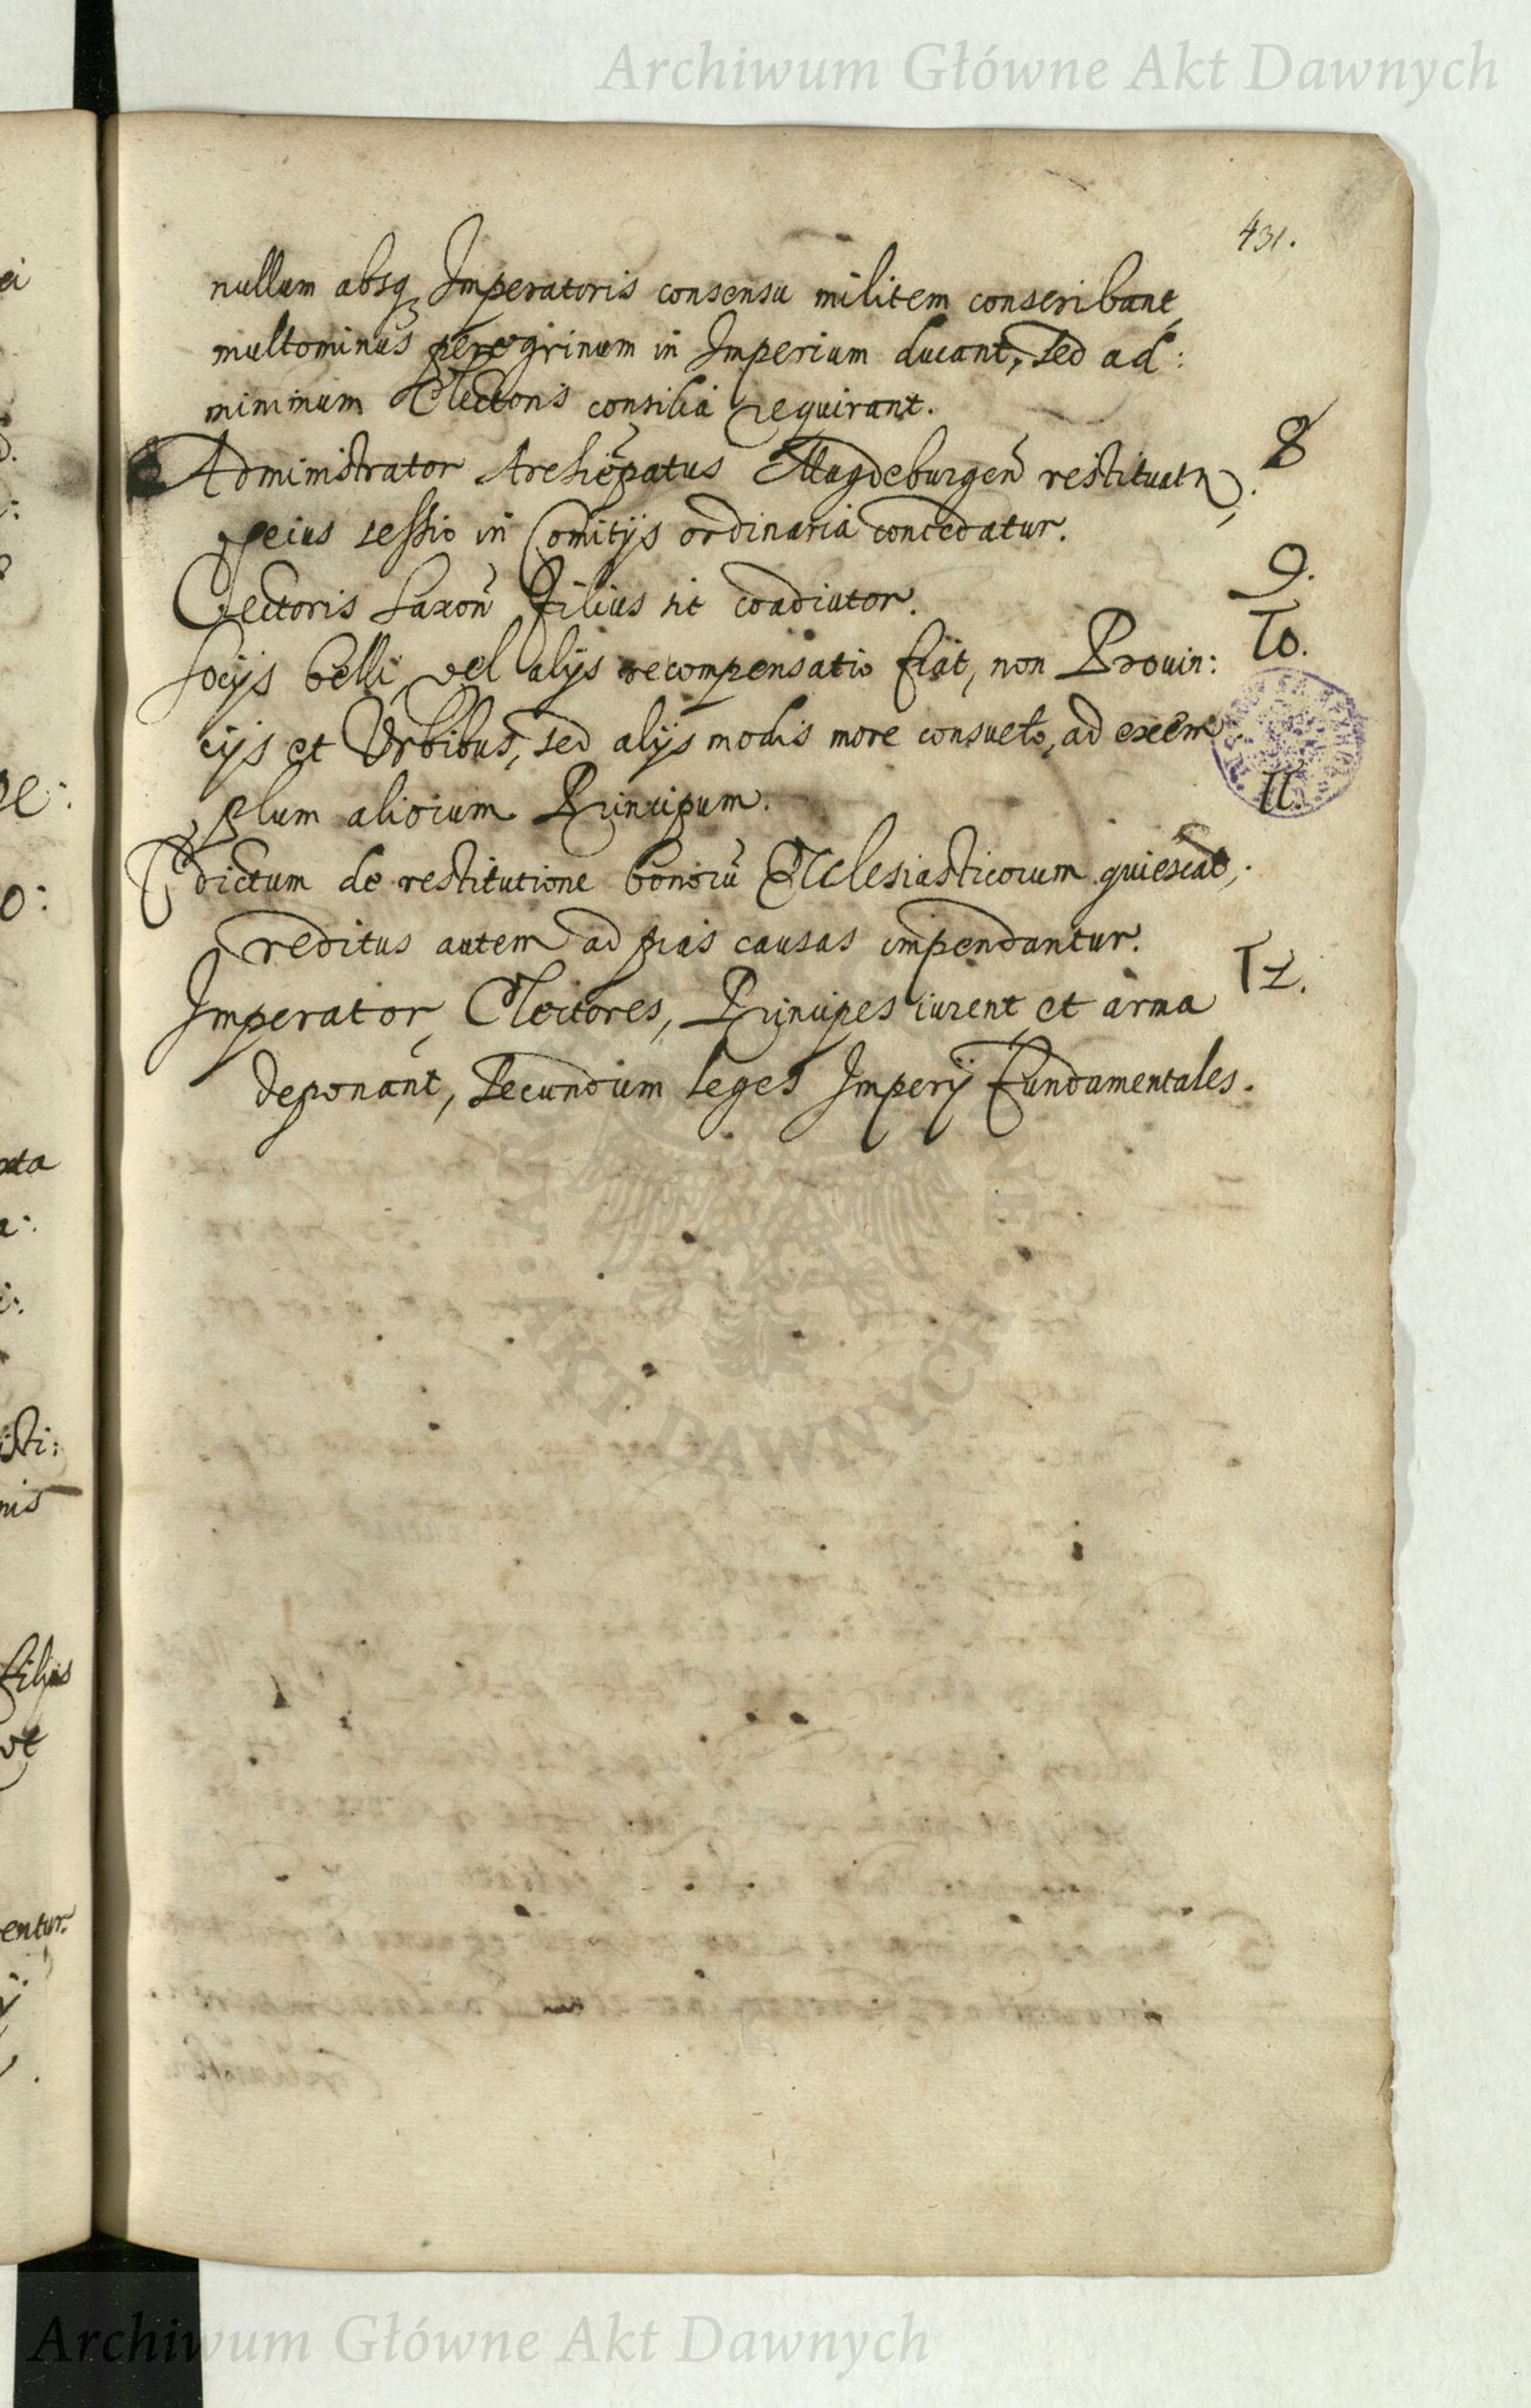 Archiwum Główne Akt Dawnych
431.
nullum absq3 Imperatoris consensu militem conscribant,
multominus peregrinum in Imperium ducant, sed ad:
minimum Electoris consilia requirant.
Administrator Archiepatus Magdeburgen restituatr; 8
eius sessio in Comitijs ordinaria concedatur.
Electoris Saxon Filius sit coadiutor. 9.
Socijs belli, vel alijs recompensatio fiat, non Prouin: 10.
cijs et Vrbibus, sed alijs modis more consueto, ad exem
plum aliorum Principum. 11.
Edictum de restitutione bonorū Ecclesiasticorum quiescat;
reditus autem ad pias causas impendantur.
Imperator, Electores, Principes iurent, et arma 12.
deponant, secundum leges Imperij fundamentales.
AKT DAWNYCH
Archiwum Główne Akt Dawnych